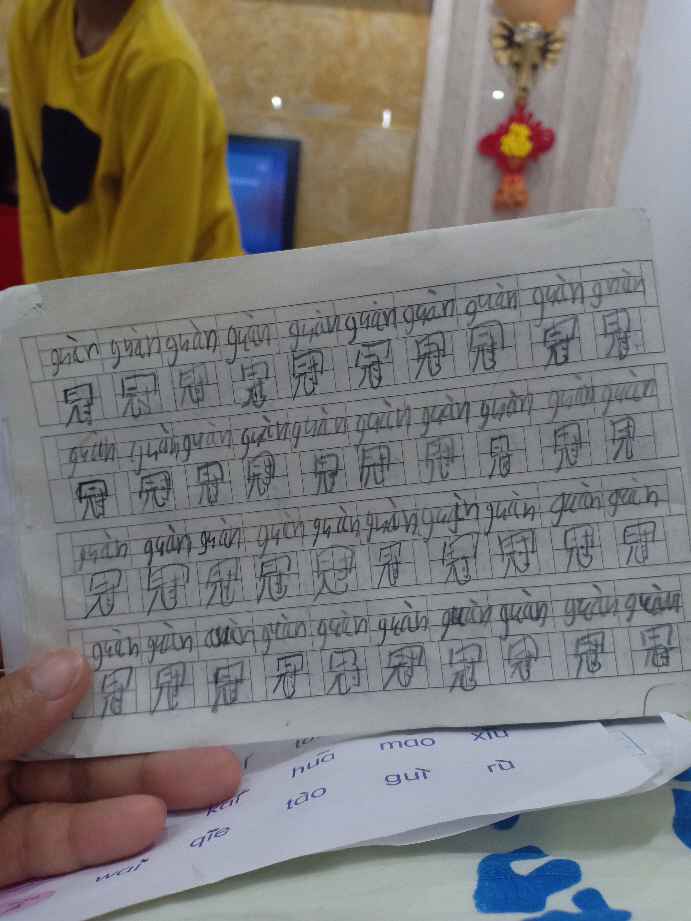 guàn guàn guàn guàn guàn guàn guàn guàn guàn guàn
冠 冠 冠 冠 冠 冠 冠 冠 冠 冠
guàn guàn guàn guàn guàn guàn guàn guàn guàn guàn
冠 冠 冠 冠 冠 冠 冠 冠 冠 冠
guàn guàn guàn guàn guàn guàn guàn guàn guàn guàn
冠 冠 冠 冠 冠 冠 冠 冠 冠 冠
guàn guàn guàn guàn guàn guàn guàn guàn guàn guàn
冠 冠 冠 冠 冠 冠 冠 冠 冠 冠
huā mao xiù
wai qié táo guì rù